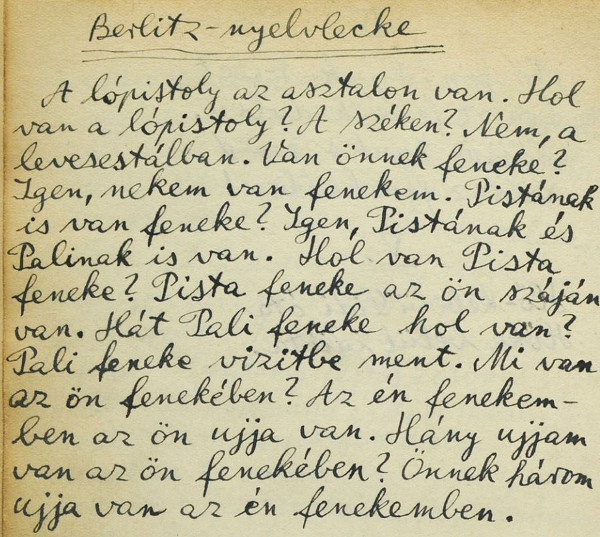 Berlitz-nyelvlecke
A lópistoly az asztalon van. Hol
van a lópistoly? A széken? Nem, a
levesestálban. Van önnek feneke?
Igen, nekem van fenekem. Pistának
is van feneke? Igen, Pistának és
Palinak is van. Hol van Pista
feneke? Pista feneke az ön száján
van. Hát Pali feneke hol van?
Pali feneke vizitbe ment. Mi van
az ön fenekében? Az én fenekem-
ben az ön ujja van. Hány ujjam
van az ön fenekében? Önnek három
ujja van az én fenekemben.